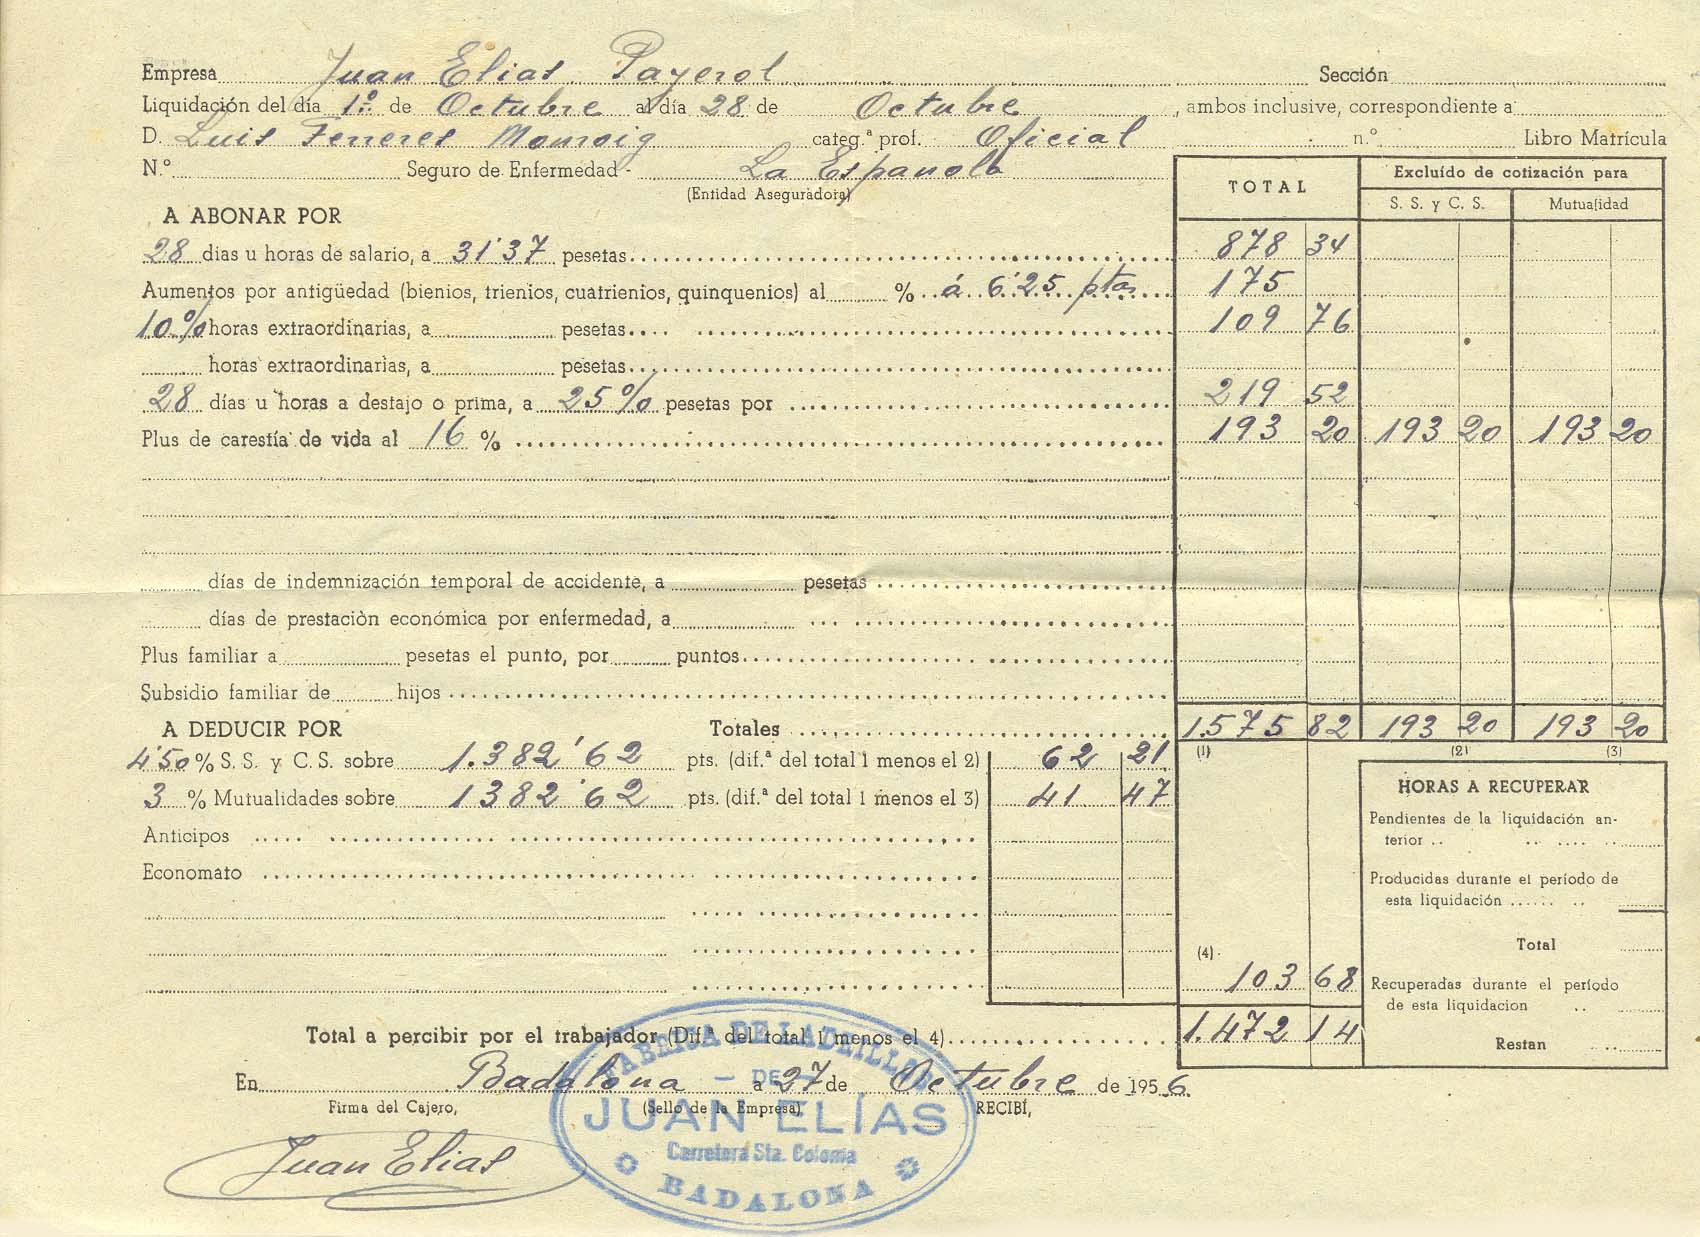 Empresa Juan Elias Payerol Sección
Liquidación del día 1º de Octubre al día 28 de Octubre, ambos inclusive, correspondiente a
D. Luis Feneres categ.ª prof. Oficial n.º Libro Matrícula
N.º Seguro de Enfermedad - La Española
(Entidad Aseguradora)
TOTAL Excluído de cotización para
S. S. y C. S. Mutualidad
A ABONAR POR
28 dias u horas de salario, a 31'37 pesetas 878 34
Aumentos por antigüedad (bienios, trienios, cuatrienios, quinquenios) al % á 6'25 ptas 175
10% horas extraordinarias, a pesetas 109 76
horas extraordinarias, a pesetas
28 días u horas a destajo o prima, a 25% pesetas por 219 52
Plus de carestía de vida al 16 % 193 20 193 20 193 20
días de indemnización temporal de accidente, a pesetas
días de prestaciòn económica por enfermedad, a
Plus familiar a pesetas el punto, por puntos
Subsidio familiar de hijos
A DEDUCIR POR Totales 1.575 82 193 20 193 20
(1) (2) (3)
4'50 % S. S. y C. S. sobre 1.382'62 pts. (dif.ª del total 1 menos el 2) 62 21
3 % Mutualidades sobre 1382'62 pts. (dif.ª del total 1 menos el 3) 41 47
Anticipos
Economato
(4) 103 68
HORAS A RECUPERAR
Pendientes de la liquidación an-
terior
Producidas durante el período de
esta liquidación
Total
Recuperadas durante el período
de esta liquidacion
Restan
Total a percibir por el trabajador (Dif.ª del total 1 menos el 4) 1.472 14
En Badalona a 27 de Octubre de 1956
Firma del Cajero, (Sello de la Empresa) RECIBÍ,
Juan Elias
FABRICA DE LADRILLOS
— DE —
JUAN ELÍAS
Carretera Sta. Coloma
BADALONA